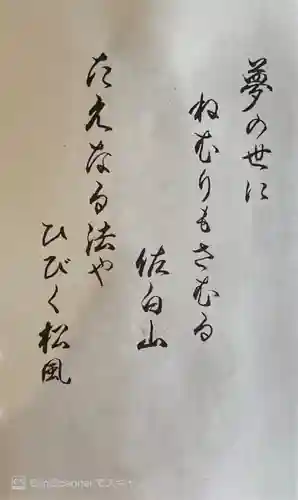 夢の世に
ねむりもさむる
佐白山
たえなる法や
ひびく松風
CamScanner でスキャン